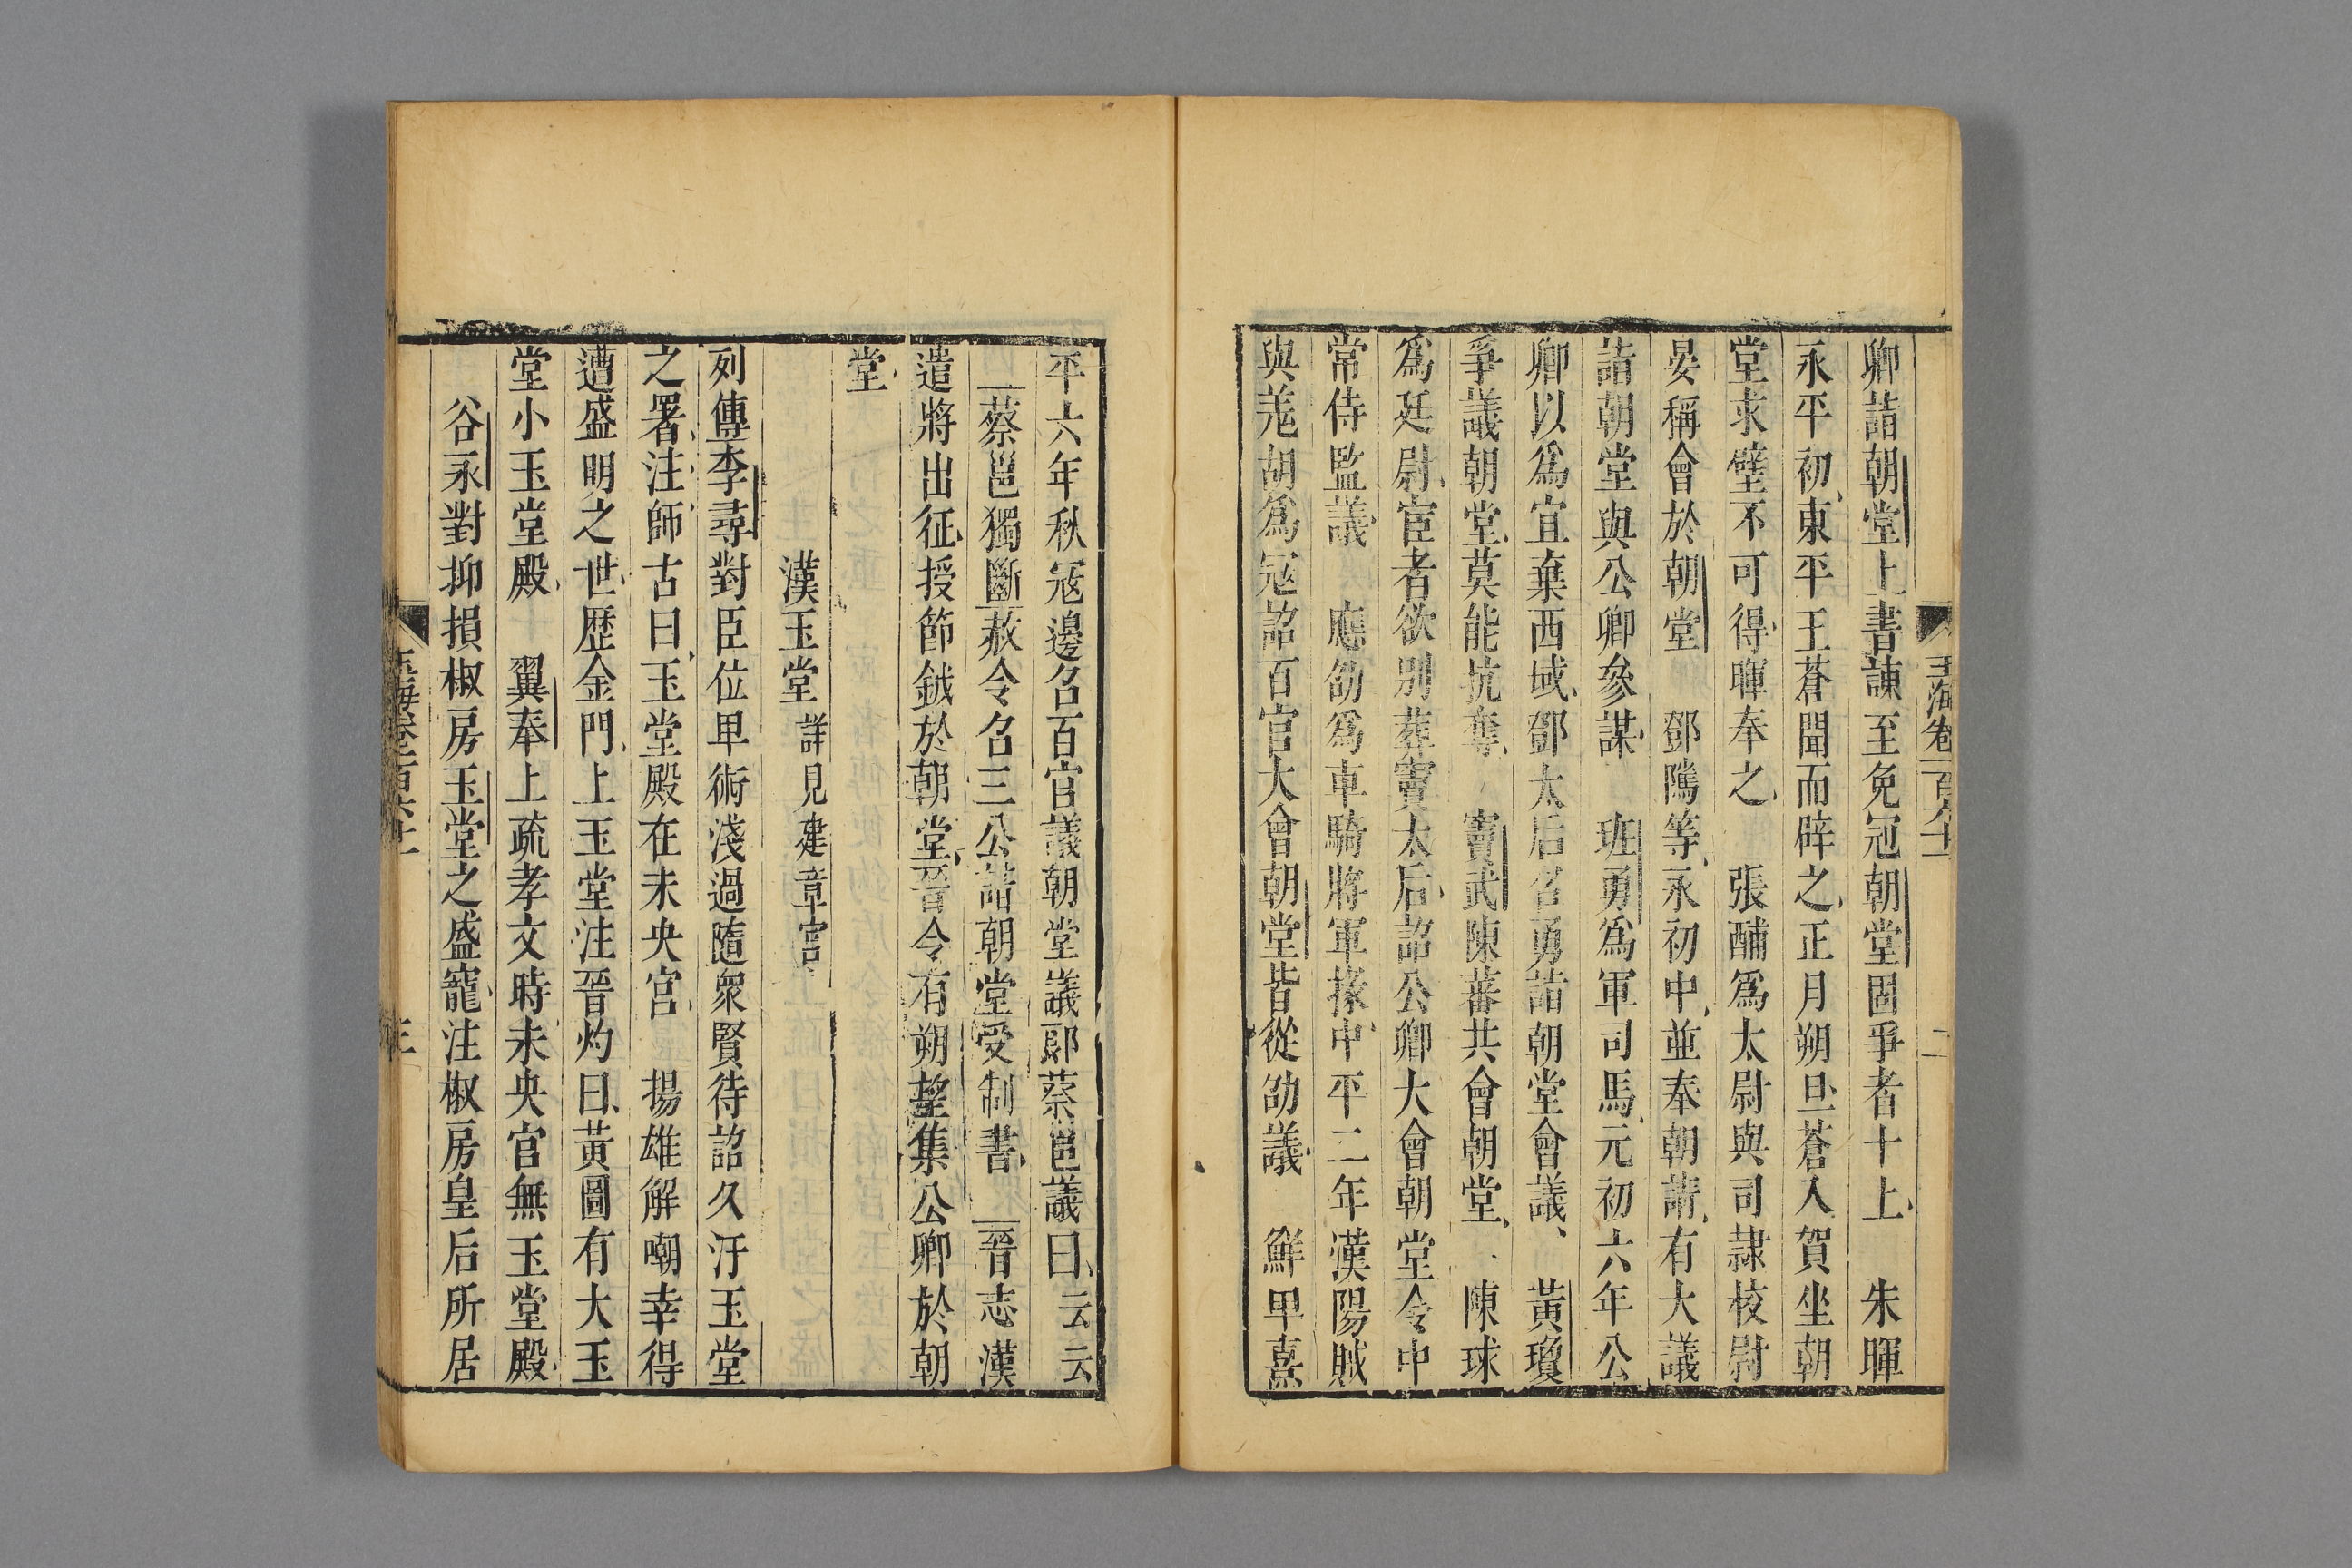 玉海卷一百六十一
二
卿詣朝堂上書諫至免冠朝堂固爭者十上 朱暉
永平初東平王蒼聞而辟之正月朔旦蒼入賀坐朝
堂求璧不可得暉奉之 張酺為太尉與司隷校尉
晏稱會於朝堂 鄧隲等永初中並奉朝請有大議
詣朝堂與公卿參謀 班勇為軍司馬元初六年公
卿以為宜棄西域鄧太后召勇詣朝堂會議 黃瓊
爭議朝堂莫能抗奪 竇武陳蕃共會朝堂 陳球
為廷尉宦者欲别葬竇太后詔公卿大會朝堂令中
常侍監議 應劭為車騎將軍掾中平二年漢陽賊
與羗胡為寇詔百官大會朝堂皆從劭議 鮮卑熹
平六年秋寇邊召百官議朝堂議郎蔡邕議曰云云
蔡邕獨斷赦令召三公詣朝堂受制書 晉志漢
遣將出征授節鉞於朝堂晉令有朔望集公卿於朝
堂
漢玉堂 詳見建章宮
列傳李尋對臣位卑術淺過隨衆賢待詔久汙玉堂
之署注師古曰玉堂殿在未央宮 揚雄解嘲幸得
遭盛明之世歷金門上玉堂注晉灼曰黃圖有大玉
堂小玉堂殿 翼奉上疏孝文時未央宮無玉堂殿
谷永對抑損椒房玉堂之盛寵注椒房皇后所居
玉海卷一百六十一
三